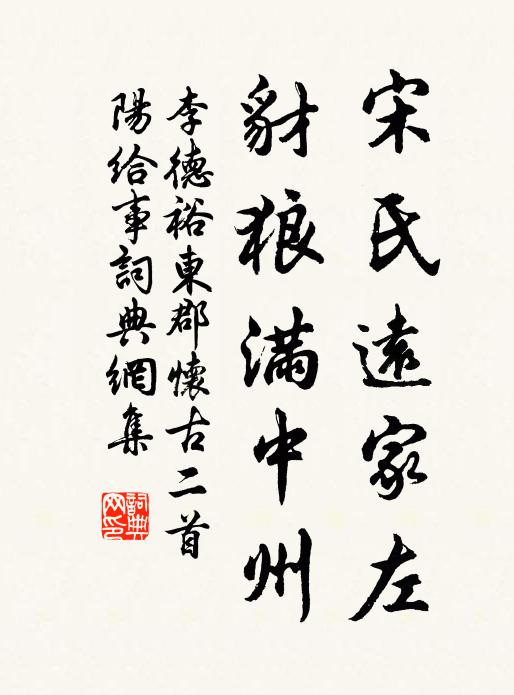 宋氏遠家左
豺狼滿中州
李德裕東郡懷古二首
陽給事詞典網集
詞典網印